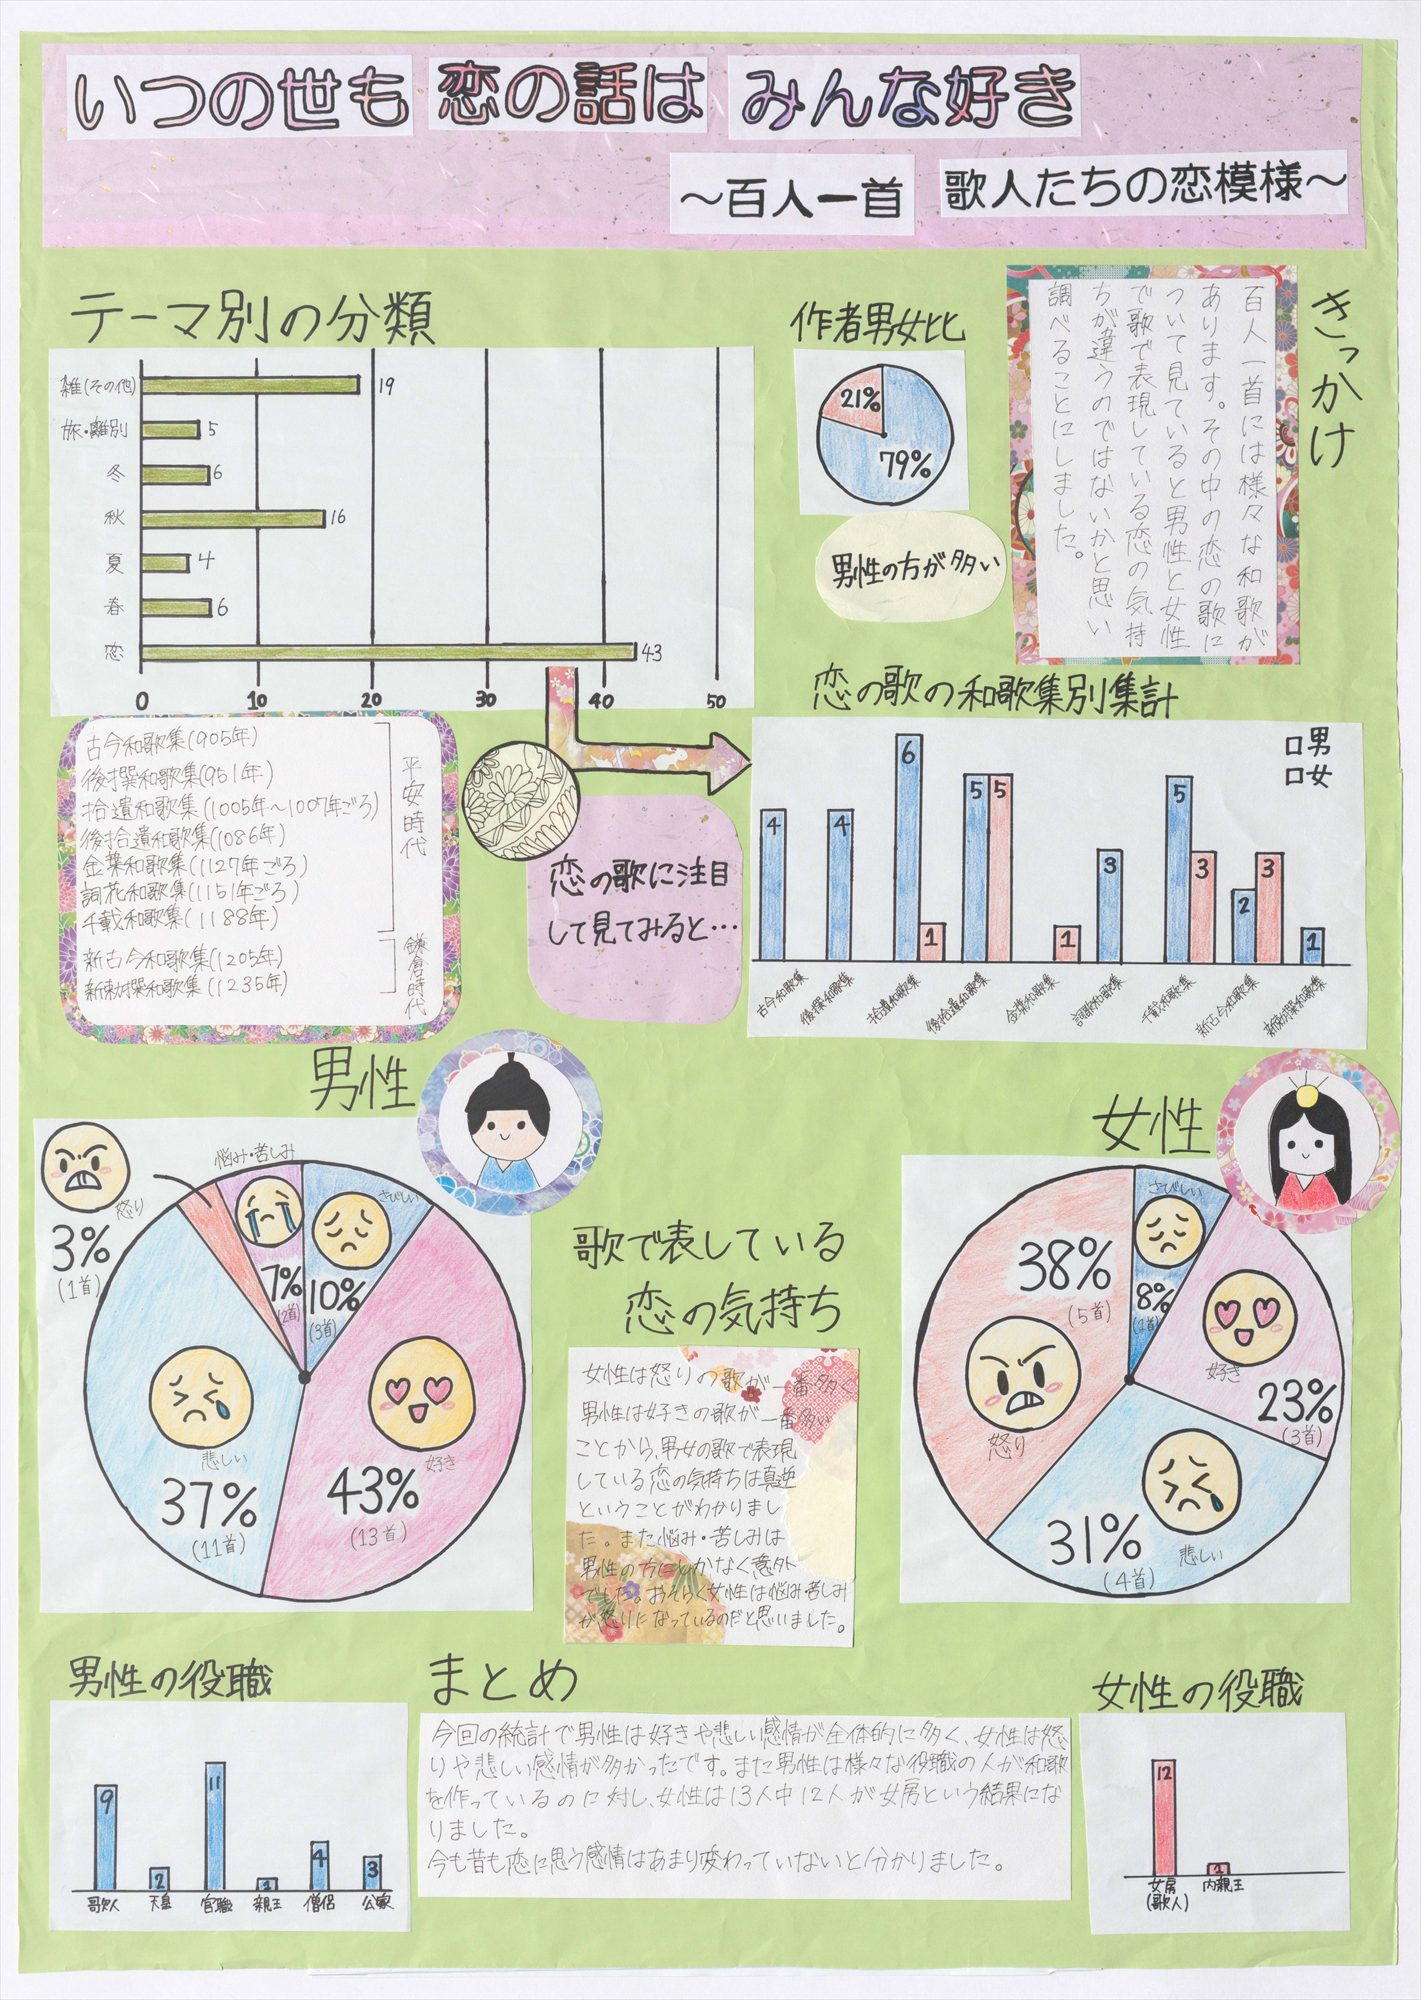 いつの世も 恋の話は みんな好き
～百人一首 歌人たちの恋模様～
きっかけ
百人一首には様々な和歌が
あります。その中の恋の歌に
ついて見ていると男性と女性
で歌で表現している恋の気持
ちが違うのではないかと思い
調べることにしました。
テーマ別の分類
雑(その他) 19
旅・離別 5
冬 6
秋 16
夏 4
春 6
恋 43
0 10 20 30 40 50
作者男女比
21%
79%
男性の方が多い
古今和歌集(905年)
後撰和歌集(951年)
拾遺和歌集(1005年～1007年ごろ)
後拾遺和歌集(1086年)
金葉和歌集(1127年ごろ)
詞花和歌集(1151年ごろ)
千載和歌集(1188年)
平安時代
新古今和歌集(1205年)
新勅撰和歌集(1235年)
鎌倉時代
恋の歌に注目
して見てみると…
恋の歌の和歌集別集計
男
女
4 4 6 1 5 5 1 3 5 3 2 3 1
古今和歌集
後撰和歌集
拾遺和歌集
後拾遺和歌集
金葉和歌集
詞歌和歌集
千載和歌集
新古今和歌集
新勅撰和歌集
男性
怒り
3%
(1首)
悩み・苦しみ
7%
(2首)
さびしい
10%
(3首)
悲しい
37%
(11首)
好き
43%
(13首)
女性
さびしい
8%
(1首)
好き
23%
(3首)
悲しい
31%
(4首)
怒り
38%
(5首)
歌で表している
恋の気持ち
女性は怒りの歌が一番多く
男性は好きの歌が一番多い
ことから、男女の歌で表現
している恋の気持ちは真逆
ということがわかりまし
た。また悩み・苦しみは
男性の方にしかなく意外
でした。おそらく女性は悩み・苦しみ
が怒りになっているのだと思いました。
男性の役職
9 2 11 1 4 3
歌人 天皇 官職 親王 僧侶 公家
まとめ
今回の統計で男性は好きや悲しい感情が全体的に多く、女性は怒
りや悲しい感情が多かったです。また男性は様々な役職の人が和歌
を作っているのに対し、女性は13人中12人が女房という結果にな
りました。
今も昔も恋に思う感情はあまり変わっていないと分かりました。
女性の役職
12 1
女房 内親王
(歌人)